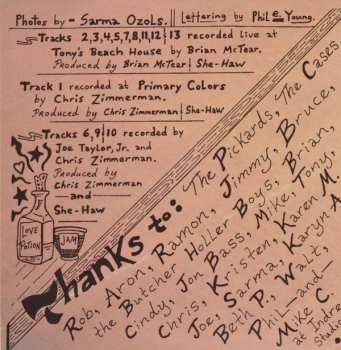 Photos by - Sarma Ozols. || Lettering by Phil e. Young.
Tracks 2,3,4,5,7,8,11,12 & 13 recorded live at
Tony's Beach House by Brian McTear.
Produced by Brian McTear | She-Haw
Track 1 recorded at Primary Colors
by Chris Zimmerman.
Produced by Chris Zimmerman | She-Haw
Tracks 6, 9 | 10 recorded by
Joe Taylor, Jr. and
Chris Zimmerman.
Produced by
Chris Zimmerman
—and—
She-Haw
LOVE
POTION
JAM
Thanks to: The Pickards, The Cases
Rob, Aron, Ramon, Jimmy, Bruce,
the Butcher Holler Boys, Brian,
Cindy, Jon Bass, Mike, Tony,
Chris, Kristen, Karen M.
Joe, Sarma, Karyn A.
Beth P., Walt,
Phil —and—
Mike C.
at Indre
Studio